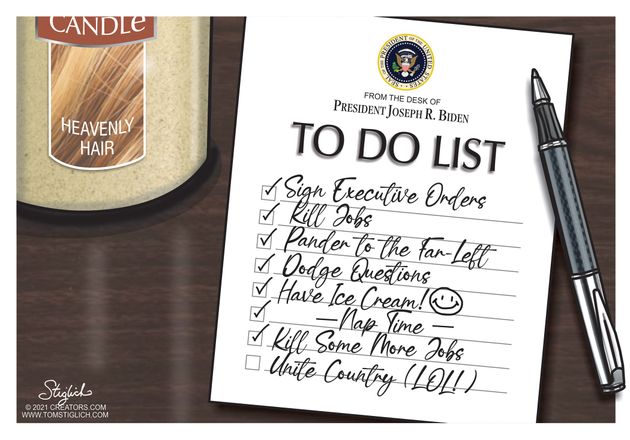 CANDLE
HEAVENLY
HAIR
SEAL OF THE PRESIDENT OF THE UNITED STATES
FROM THE DESK OF
PRESIDENT JOSEPH R. BIDEN
TO DO LIST
Sign Executive Orders
Kill Jobs
Pander to the Far-Left
Dodge Questions
Have Ice Cream!
—Nap Time—
Kill Some More Jobs
Unite Country (LOL!)
Stiglich
© 2021 CREATORS.COM
WWW.TOMSTIGLICH.COM